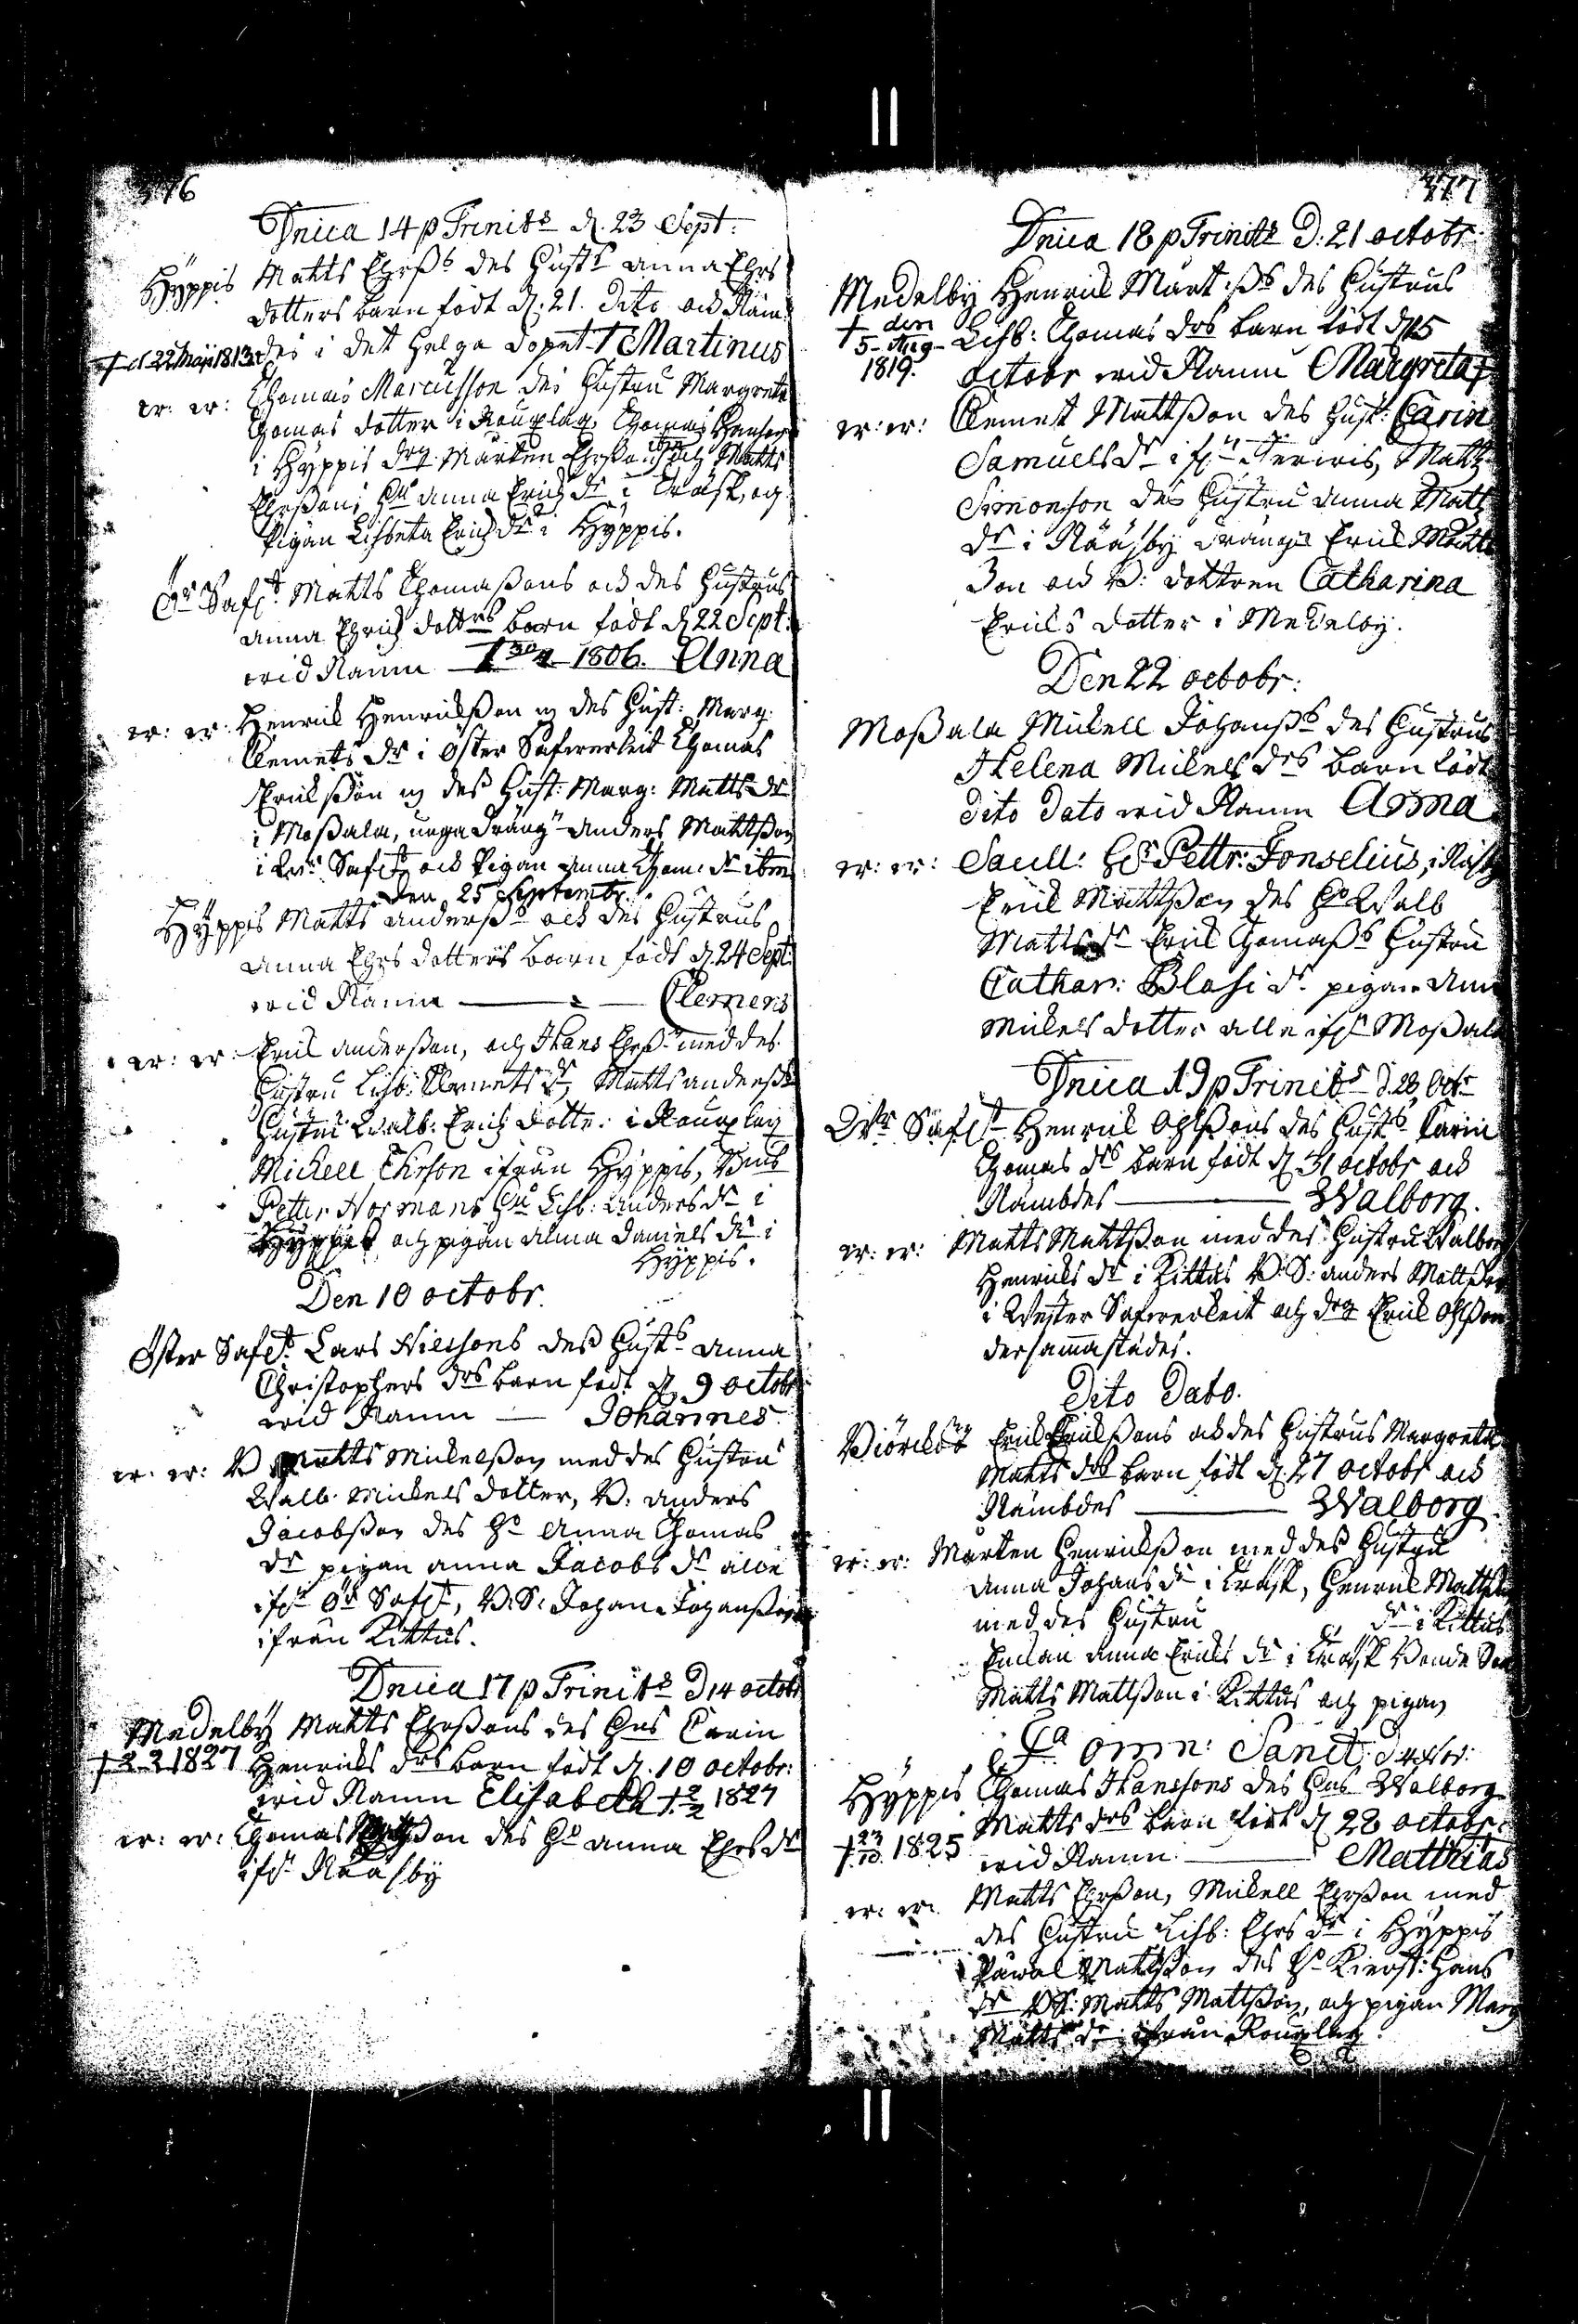 376
Dnica 14 p Trinits d. 23 Sept:
Hyppis Matts Ehrsßs des Hustr Anna Ehrs
dotters barn födt d. 21. dito och Näm
† d 22 Maij 1813. des i det helga dopet † Martinus
Thomas Marcusson des Hustru Margreta
Thomas dotter i Rouxlax, Thomas Hanson
i Hyppis drg. Mårten Ehrsson och Matts
Ehrsßons Hu Anna Erichs dr i Träsk, og
Pigan Lisbeta Erichs dr i Hyppis.
Ör Saf Matts Thomaßons och des Hustrus
Anna Ehrichs dotters barn födt d 22 Sept:
wid Namn 1806. Anna
Henrick Henrickßon m des Hust: Marg:
Clemets dr i Öster Safwerkeit Thomas
Erickßson m des Hust: Marg: Matts dr
i Moßala, unga dräng Anders Mattßon
i Wr Saf och Pigan Anna Thom: dr ibm
Den 25 Septembr.
Hyppis Matts Anderßs och des Hustrus
Anna Ehrs dotters barn födt d. 24 Sept:
wid Namn Clemens
Erick Anderßon, och Hans Ehrß med des
Hustru Lisb: Clemets dr, Matts Anderß
Hustru Walb: Erichs dotter i Rouxlax
Mickell Ehrson ifrån Hyppis,
Petter Normans Hu Lisb: Anders dr i
och pigan Anna Daniels dr i
Hyppis.
Den 10 octobr.
Öster Saf Lars Nilssons deß Husts Anna
Christophers drs barn födt d. 9 octobr
wid Namn Johannes.
Matts Mickelßon med des Hustru
Walb. Mickels dotter, B: Anders
Jacobßon des Ho Anna Thomas
dr pigan Anna Jacobs dr alle
ifr Ör Saf, B: S: Johan Johanßon
ifrån Kittus.
Dnica 17 p Trinits D 14 octobr
Medelby Matts Ehrßons des Hus Carin
† 2-2 1827 Henricks drs barn födt d. 10 octobr:
wid Namn Elisabeth † 2/2 1827
Thomas des Ho Anna Ehrs dr
ifr Näåsby
377
Dnica 18 p Trinits D: 21 octobr
Medelby Henrick Mårtßs des Hustrus
† den 5 Aug 1819. Lisb: Thomas drs barn födt d 15
octobr wid Namn Margreta †
Clemet Mattßon des Hust: Carin
Samuels dr ifn Jerwis, Matts
Simonson des Hustru Anna Matts
dr i Näåsby drängen Erick Matts
son och B: dottren Catharina
Ericks dotter i Medelby.
Den 22 octobr:
Moßala Mickell Johanßs des Hustrus
Helena Mickels drs barn födt
dito dato wid Namn Anna
Saull: Hr Pettr: Fonselius, i
Erick Mattßon des Ho Walb
Matts dr Erick Thomaßs Hustru
Cathar: Blasi dr pigan Anna
Mickels dotter alle ifr Moßala
Dnica 19 p Trinits d. 28 Octr
Wr Saf Henrick Ohlßons des Husts Karin
Thomas drs barn födt d. 31 octobr och
Nämbdes Walborg.
Matts Mattßon med des Hustru Walborg
Henricks dr i Kittus B: S: Anders Mattßon
i Wester Safwerkeit och drg Erick Ohlßon
dersammastädes.
Dito Dato.
Biörckö Erick Erickßons och des Hustrus Margreta
Matts drs barn födt d. 27 octobr och
Nämbdes Walborg.
Mårten Henrickßon med des Hustru
Anna Johans dr i Träsk, Henrick Mattßon
med des Hustru dr i Kittus
Enckan Anna Ericks dr i Träsk Bonde Son
Matts Mattßon i Kittus och pigan
Fa omn: Sanct. D 4 Nov:
Hyppis Thomas Hanssons des Hus Walborg
Matts drs barn födt d 28 octobr.
† 23/10. 1825 wid Namn Matthias
Matts Ehrßon, Mickell Ehrßon med
des Hustru Lisb: Ehrs dr i Hyppis
Påwal Mattßon des Ho Kierst: Hans
dr BS: Matts Mattßon, och pigan Marg
Matts dr ifrån Rouxlax.